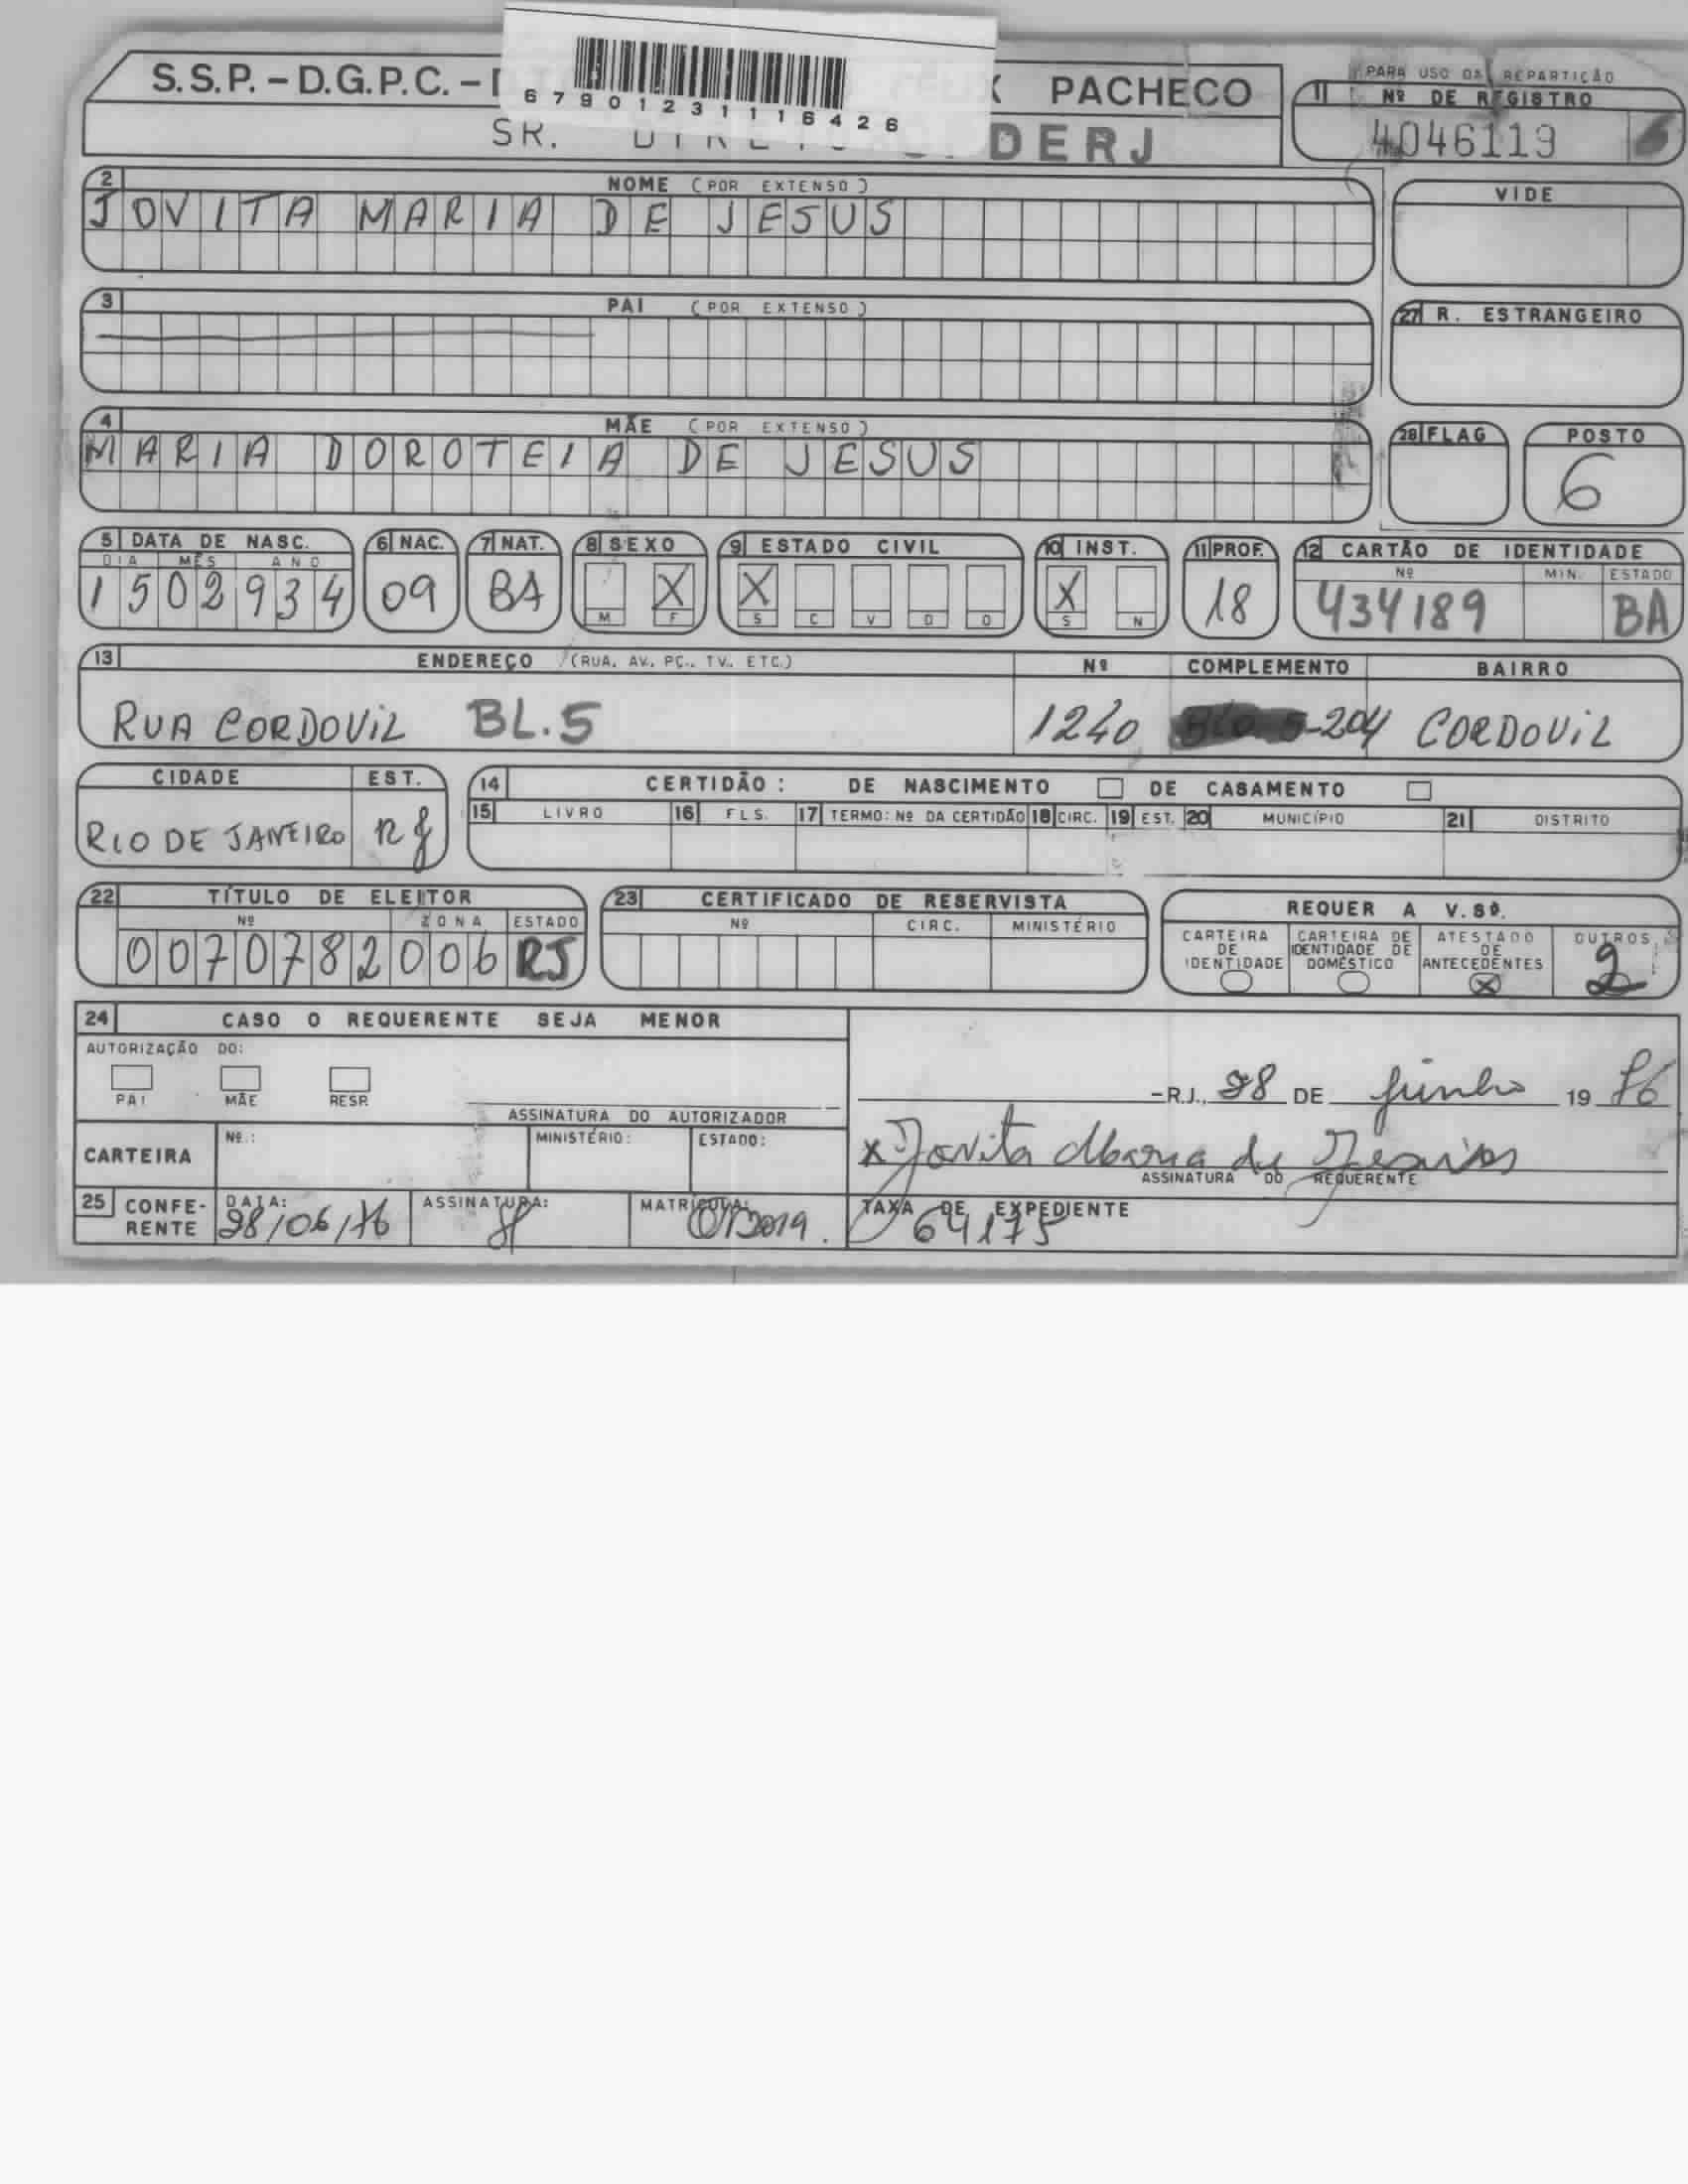 S.S.P.-D.G.P.C.- PACHECO
67901231116426
SR. DERJ
PARA USO DA REPARTIÇÃO
1 Nº DE REGISTRO
4046119
2 NOME (POR EXTENSO)
JOVITA MARIA DE JESUS
VIDE
3 PAI (POR EXTENSO)
27 R. ESTRANGEIRO
4 MÃE (POR EXTENSO)
MARIA DOROTEIA DE JESUS
28 FLAG POSTO
6
5 DATA DE NASC. 6 NAC. 7 NAT. 8 SEXO 9 ESTADO CIVIL 10 INST. 11 PROF. 12 CARTÃO DE IDENTIDADE
DIA MÊS ANO Nº MIN. ESTADO
1502934 09 BA X X X 18 434189 BA
M F S C V D O S N
13 ENDEREÇO (RUA, AV., PÇ., TV., ETC.) Nº COMPLEMENTO BAIRRO
RUA CORDOVIL BL.5 1240 -204 CORDOVIL
CIDADE EST.
RIO DE JANEIRO RJ
14 CERTIDÃO: DE NASCIMENTO DE CASAMENTO
15 LIVRO 16 FLS. 17 TERMO: Nº DA CERTIDÃO 18 CIRC. 19 EST. 20 MUNICÍPIO 21 DISTRITO
22 TÍTULO DE ELEITOR
Nº ZONA ESTADO
0070782006 RJ
23 CERTIFICADO DE RESERVISTA
Nº CIRC. MINISTÉRIO
REQUER A V.Sª.
CARTEIRA DE IDENTIDADE
CARTEIRA DE IDENTIDADE DE DOMÉSTICO
ATESTADO DE ANTECEDENTES
X
OUTROS
2
24 CASO O REQUERENTE SEJA MENOR
AUTORIZAÇÃO DO:
PAI MÃE RESP.
ASSINATURA DO AUTORIZADOR
CARTEIRA Nº: MINISTÉRIO: ESTADO:
-R.J., 28 DE Junho 19 86
x Jovita Maria de Jesus
ASSINATURA DO REQUERENTE
25 CONFERENTE DATA: ASSINATURA: MATRÍCULA:
TAXA DE EXPEDIENTE
64175